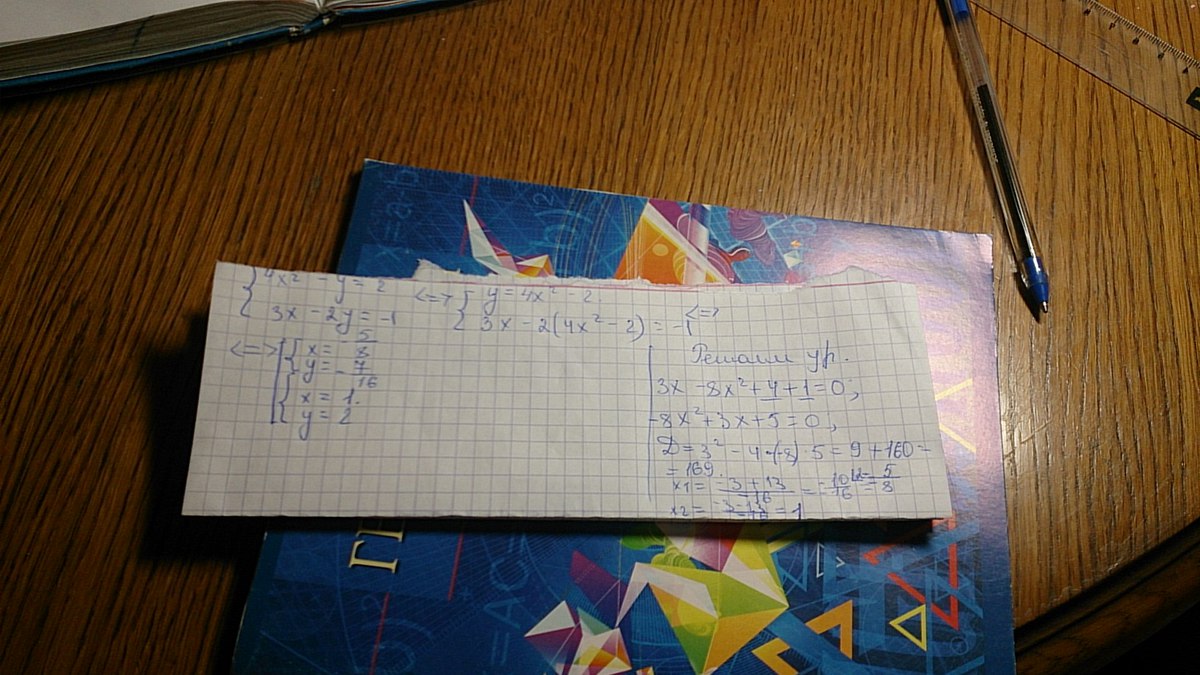 4x² - y = 2
3x - 2y = -1
<=> y = 4x² - 2
3x - 2(4x² - 2) = -1
<=>
<=> x = 5/8
y = -7/16
x = 1.
y = 2
Решаем ур.
3x - 8x² + 4 + 1 = 0;
-8x² + 3x + 5 = 0;
D = 3² - 4·(-8)·5 = 9 + 160 =
= 169.
x1 = (-3 + 13)/-16 = -10/16 = -5/8
x2 = (-3 - 13)/-16 = 1